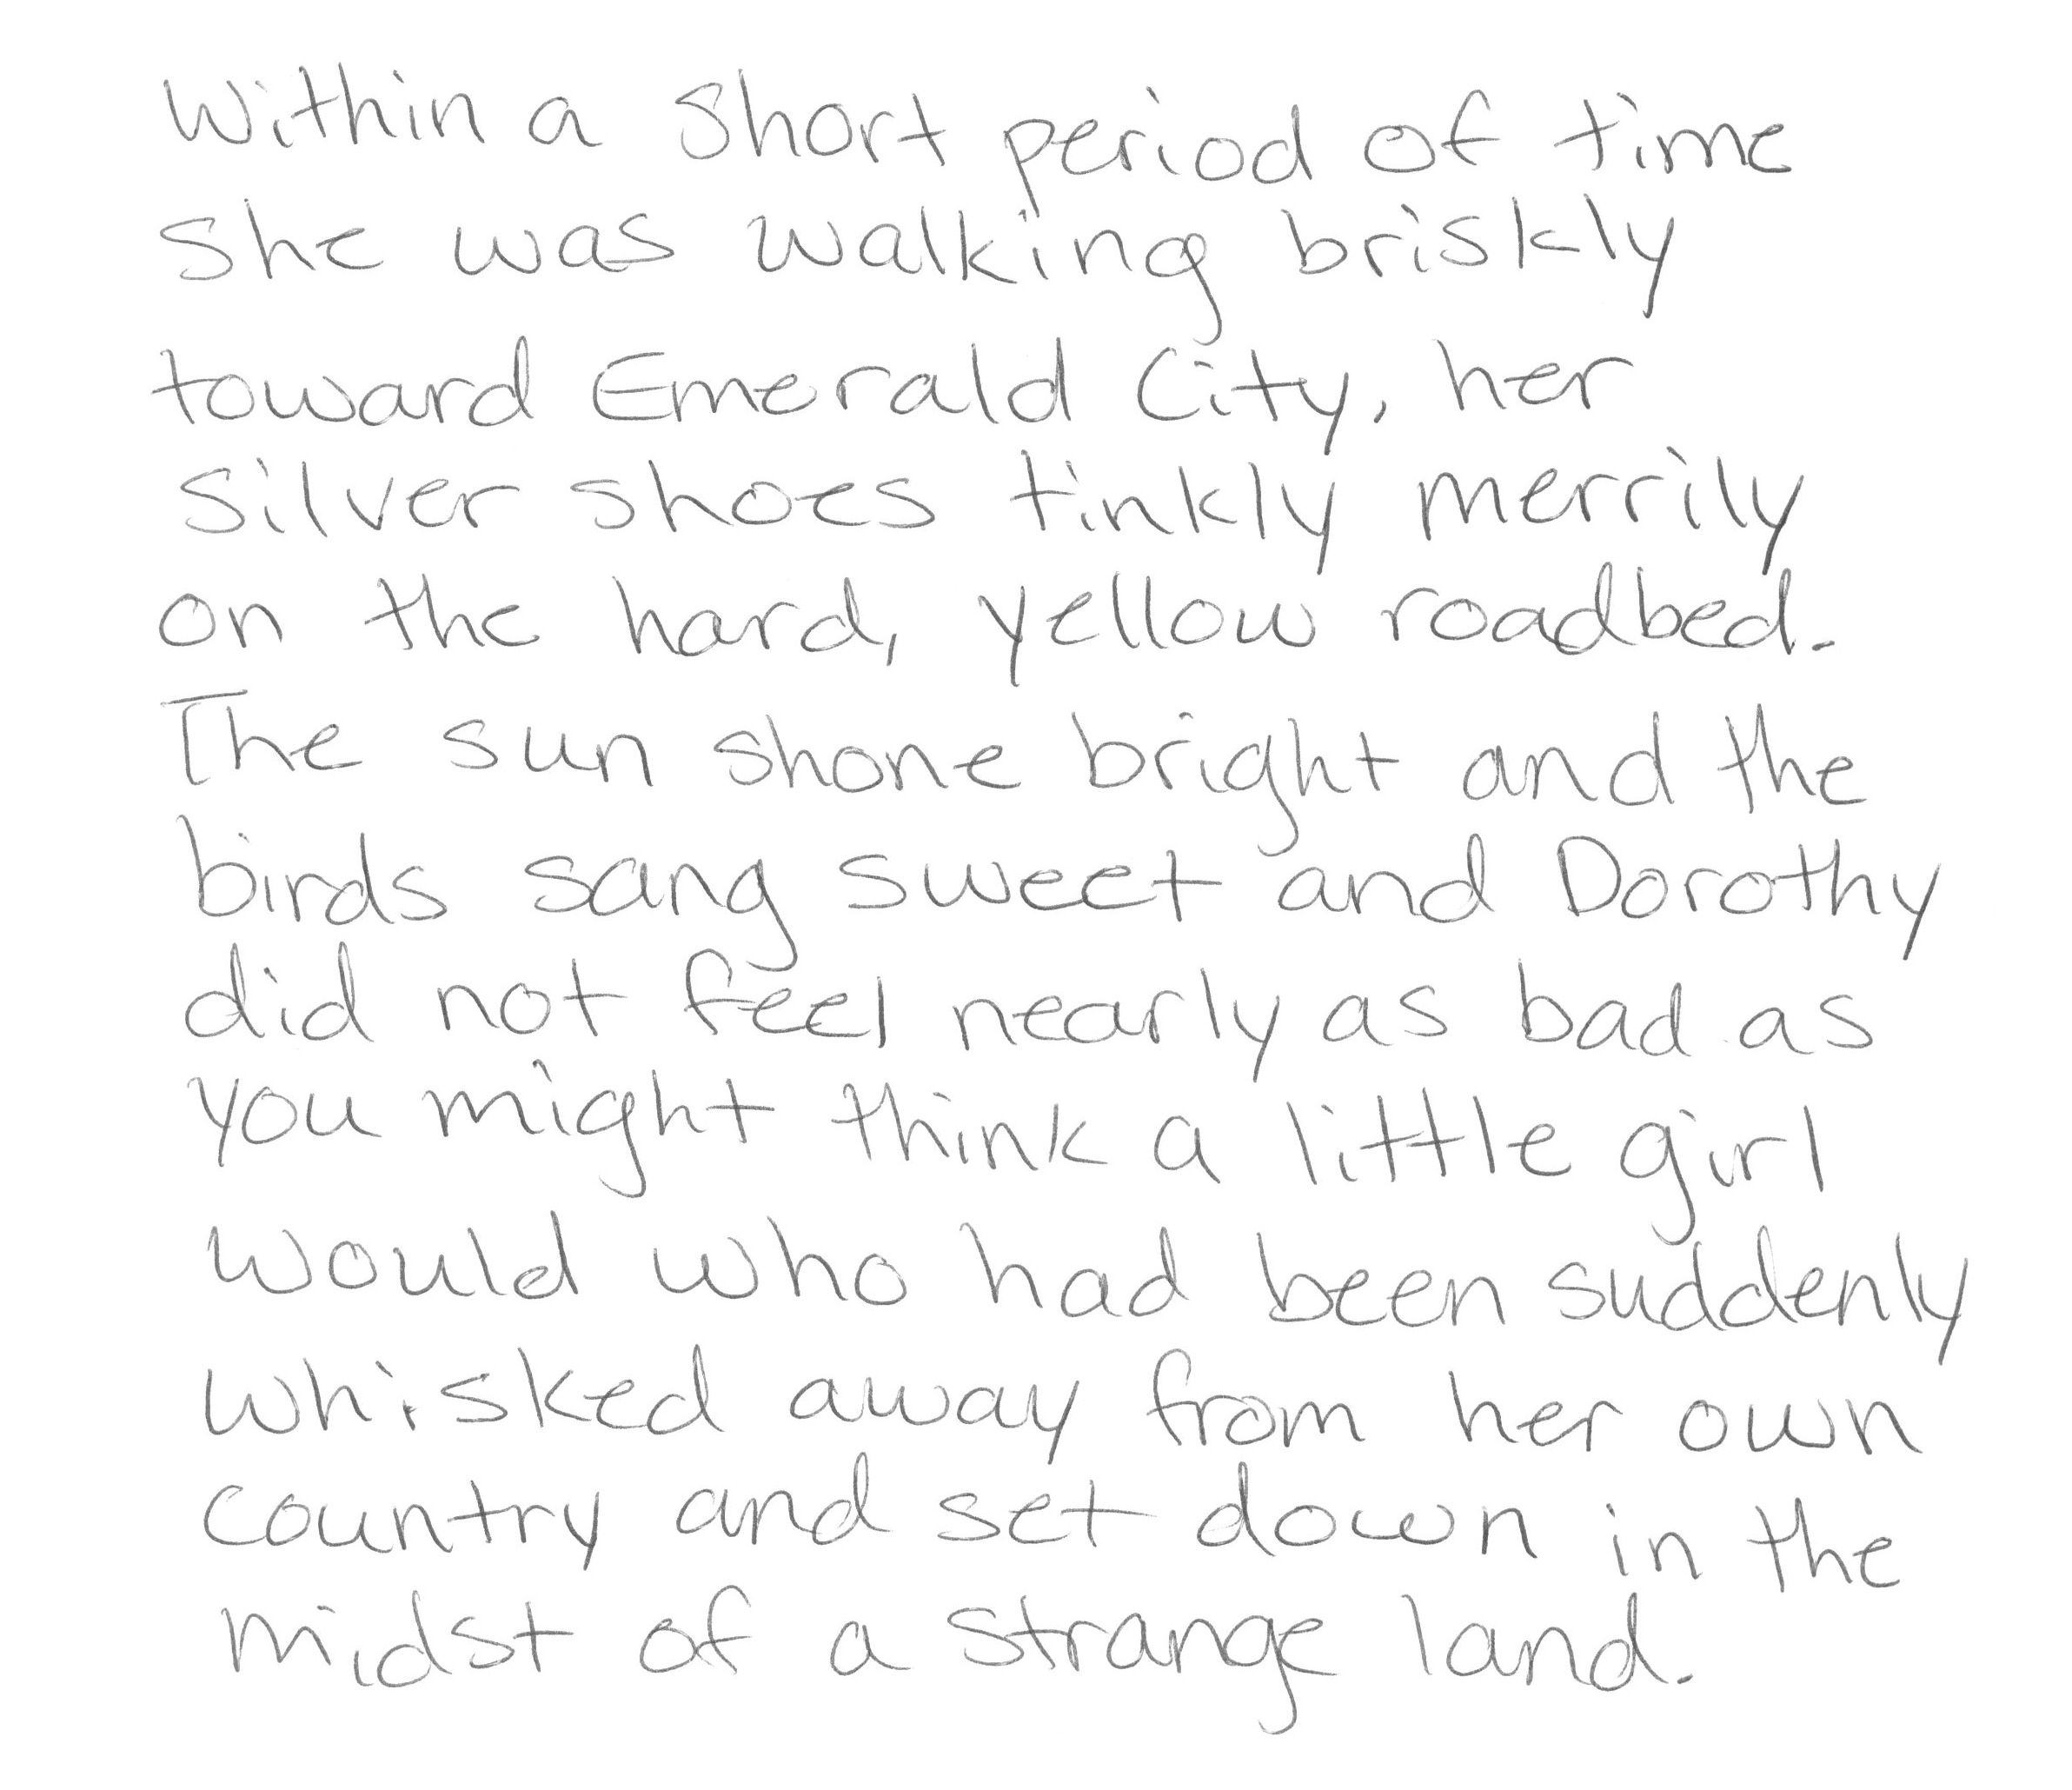 Within a short period of time
she was walking briskly
toward Emerald City, her
silver shoes tinkly merrily
on the hard, yellow roadbed.
The sun shone bright and the
birds sang sweet and Dorothy
did not feel nearly as bad as
you might think a little girl
would who had been suddenly
whisked away from her own
country and set down in the
midst of a strange land.